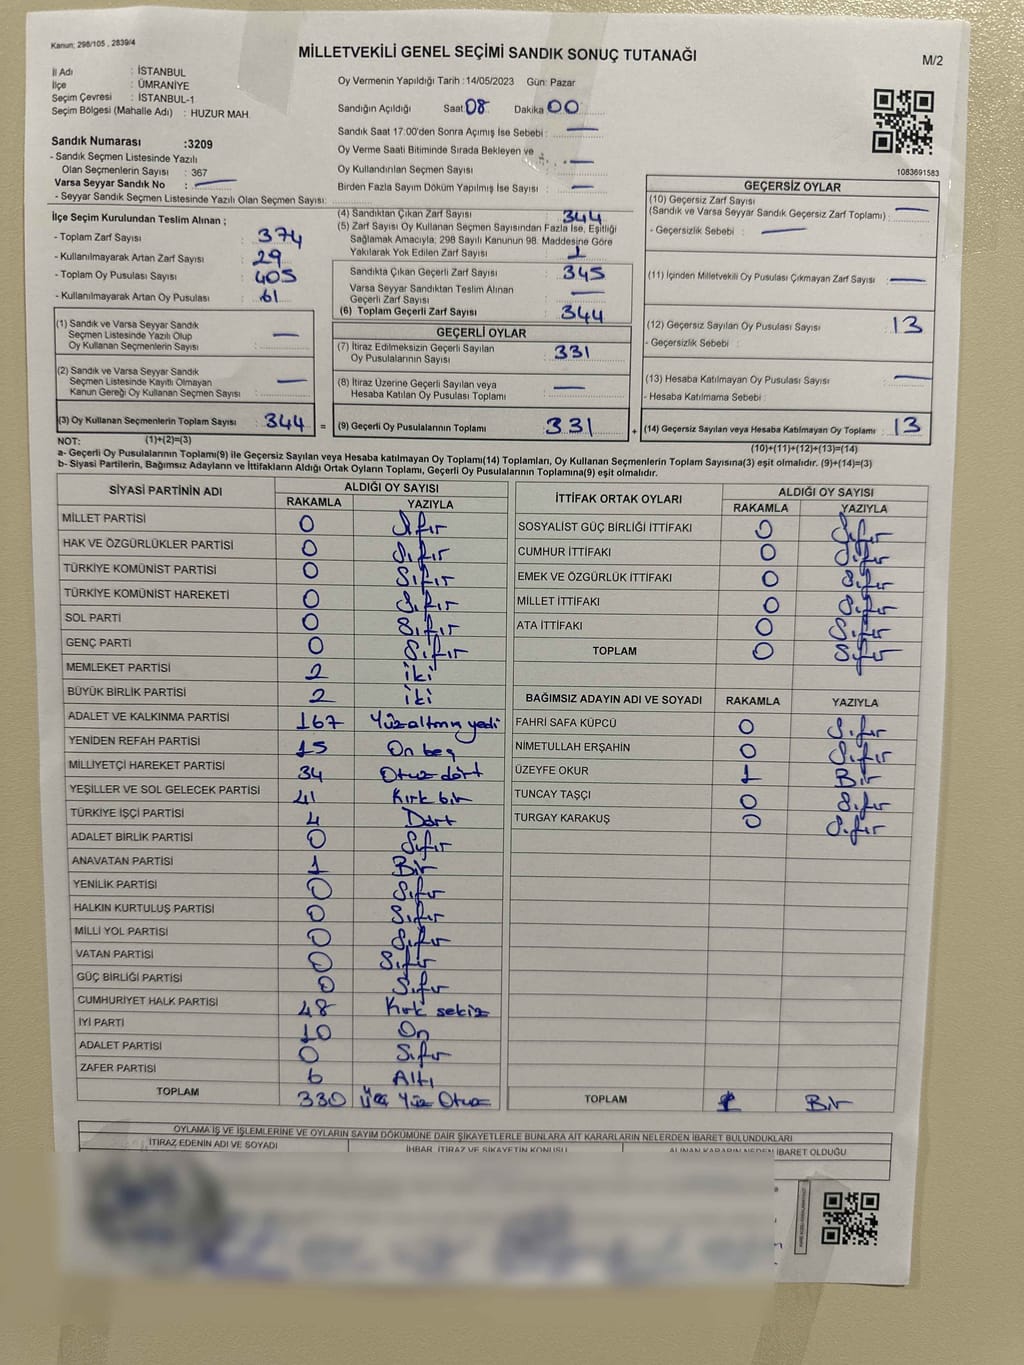 Kanun; 298/105 , 2839/4
MİLLETVEKİLİ GENEL SEÇİMİ SANDIK SONUÇ TUTANAĞI
M/2
İl Adı : İSTANBUL
İlçe : ÜMRANİYE
Seçim Çevresi : İSTANBUL-1
Seçim Bölgesi (Mahalle Adı) : HUZUR MAH.
Sandık Numarası :3209
- Sandık Seçmen Listesinde Yazılı
Olan Seçmenlerin Sayısı : 367
Varsa Seyyar Sandık No : —
- Seyyar Sandık Seçmen Listesinde Yazılı Olan Seçmen Sayısı:
Oy Vermenin Yapıldığı Tarih :14/05/2023 Gün: Pazar
Sandığın Açıldığı Saat:08 Dakika:00
Sandık Saat 17:00'den Sonra Açımış İse Sebebi : —
Oy Verme Saati Bitiminde Sırada Bekleyen ve
Oy Kullandırılan Seçmen Sayısı : —
Birden Fazla Sayım Döküm Yapılmış İse Sayısı : —
1083691583
İlçe Seçim Kurulundan Teslim Alınan ;
- Toplam Zarf Sayısı : 374
- Kullanılmayarak Artan Zarf Sayısı : 29
- Toplam Oy Pusulası Sayısı : 405
- Kullanılmayarak Artan Oy Pusulası : 61
(1) Sandık ve Varsa Seyyar Sandık
Seçmen Listesinde Yazılı Olup
Oy Kullanan Seçmenlerin Sayısı : —
(2) Sandık ve Varsa Seyyar Sandık
Seçmen Listesinde Kayıtlı Olmayan
Kanun Gereği Oy Kullanan Seçmen Sayısı : —
(3) Oy Kullanan Seçmenlerin Toplam Sayısı : 344 =
(4) Sandıktan Çıkan Zarf Sayısı : 344
(5) Zarf Sayısı Oy Kullanan Seçmen Sayısından Fazla İse, Eşitliği
Sağlamak Amacıyla; 298 Sayılı Kanunun 98. Maddesine Göre
Yakılarak Yok Edilen Zarf Sayısı : 1
Sandıkta Çıkan Geçerli Zarf Sayısı : 345
Varsa Seyyar Sandıktan Teslim Alınan
Geçerli Zarf Sayısı : —
(6) Toplam Geçerli Zarf Sayısı : 344
GEÇERLİ OYLAR
(7) İtiraz Edilmeksizin Geçerli Sayılan
Oy Pusulalarının Sayısı : 331
(8) İtiraz Üzerine Geçerli Sayılan veya
Hesaba Katılan Oy Pusulası Toplamı : —
(9) Geçerli Oy Pusulalarının Toplamı : 331 +
GEÇERSİZ OYLAR
(10) Geçersiz Zarf Sayısı
(Sandık ve Varsa Seyyar Sandık Geçersiz Zarf Toplamı) : —
- Geçersizlik Sebebi : —
(11) İçinden Milletvekili Oy Pusulası Çıkmayan Zarf Sayısı : —
(12) Geçersiz Sayılan Oy Pusulası Sayısı : 13
- Geçersizlik Sebebi :
(13) Hesaba Katılmayan Oy Pusulası Sayısı : —
- Hesaba Katılmama Sebebi :
(14) Geçersiz Sayılan veya Hesaba Katılmayan Oy Toplamı : 13
NOT: (1)+(2)=(3) (10)+(11)+(12)+(13)=(14)
a- Geçerli Oy Pusulalarının Toplamı(9) ile Geçersiz Sayılan veya Hesaba katılmayan Oy Toplamı(14) Toplamları, Oy Kullanan Seçmenlerin Toplam Sayısına(3) eşit olmalıdır. (9)+(14)=(3)
b- Siyasi Partilerin, Bağımsız Adayların ve İttifakların Aldığı Ortak Oyların Toplamı, Geçerli Oy Pusulalarının Toplamına(9) eşit olmalıdır.
SİYASİ PARTİNİN ADI ALDIĞI OY SAYISI
RAKAMLA YAZIYLA
MİLLET PARTİSİ 0 Sıfır
HAK VE ÖZGÜRLÜKLER PARTİSİ 0 Sıfır
TÜRKİYE KOMÜNİST PARTİSİ 0 Sıfır
TÜRKİYE KOMÜNİST HAREKETİ 0 Sıfır
SOL PARTİ 0 Sıfır
GENÇ PARTİ 0 Sıfır
MEMLEKET PARTİSİ 2 iki
BÜYÜK BİRLİK PARTİSİ 2 iki
ADALET VE KALKINMA PARTİSİ 167 Yüzaltmış yedi
YENİDEN REFAH PARTİSİ 15 On beş
MİLLİYETÇİ HAREKET PARTİSİ 34 Otuz dört
YEŞİLLER VE SOL GELECEK PARTİSİ 41 Kırk bir
TÜRKİYE İŞÇİ PARTİSİ 4 Dört
ADALET BİRLİK PARTİSİ 0 Sıfır
ANAVATAN PARTİSİ 1 Bir
YENİLİK PARTİSİ 0 Sıfır
HALKIN KURTULUŞ PARTİSİ 0 Sıfır
MİLLİ YOL PARTİSİ 0 Sıfır
VATAN PARTİSİ 0 Sıfır
GÜÇ BİRLİĞİ PARTİSİ 0 Sıfır
CUMHURİYET HALK PARTİSİ 48 Kırk sekiz
İYİ PARTİ 10 On
ADALET PARTİSİ 0 Sıfır
ZAFER PARTİSİ 6 Altı
TOPLAM 330 Üç Yüz Otuz
İTTİFAK ORTAK OYLARI ALDIĞI OY SAYISI
RAKAMLA YAZIYLA
SOSYALİST GÜÇ BİRLİĞİ İTTİFAKI 0 Sıfır
CUMHUR İTTİFAKI 0 Sıfır
EMEK VE ÖZGÜRLÜK İTTİFAKI 0 Sıfır
MİLLET İTTİFAKI 0 Sıfır
ATA İTTİFAKI 0 Sıfır
TOPLAM 0 Sıfır
BAĞIMSIZ ADAYIN ADI VE SOYADI RAKAMLA YAZIYLA
FAHRİ SAFA KÜPCÜ 0 Sıfır
NİMETULLAH ERŞAHİN 0 Sıfır
ÜZEYFE OKUR 1 Bir
TUNCAY TAŞÇI 0 Sıfır
TURGAY KARAKUŞ 0 Sıfır
TOPLAM 1 Bir
OYLAMA İŞ VE İŞLEMLERİNE VE OYLARIN SAYIM DÖKÜMÜNE DAİR ŞİKAYETLERLE BUNLARA AİT KARARLARIN NELERDEN İBARET BULUNDUKLARI
İTİRAZ EDENİN ADI VE SOYADI İHBAR, İTİRAZ VE ŞİKAYETİN KONUSU ALINAN KARARIN NEDEN İBARET OLDUĞU